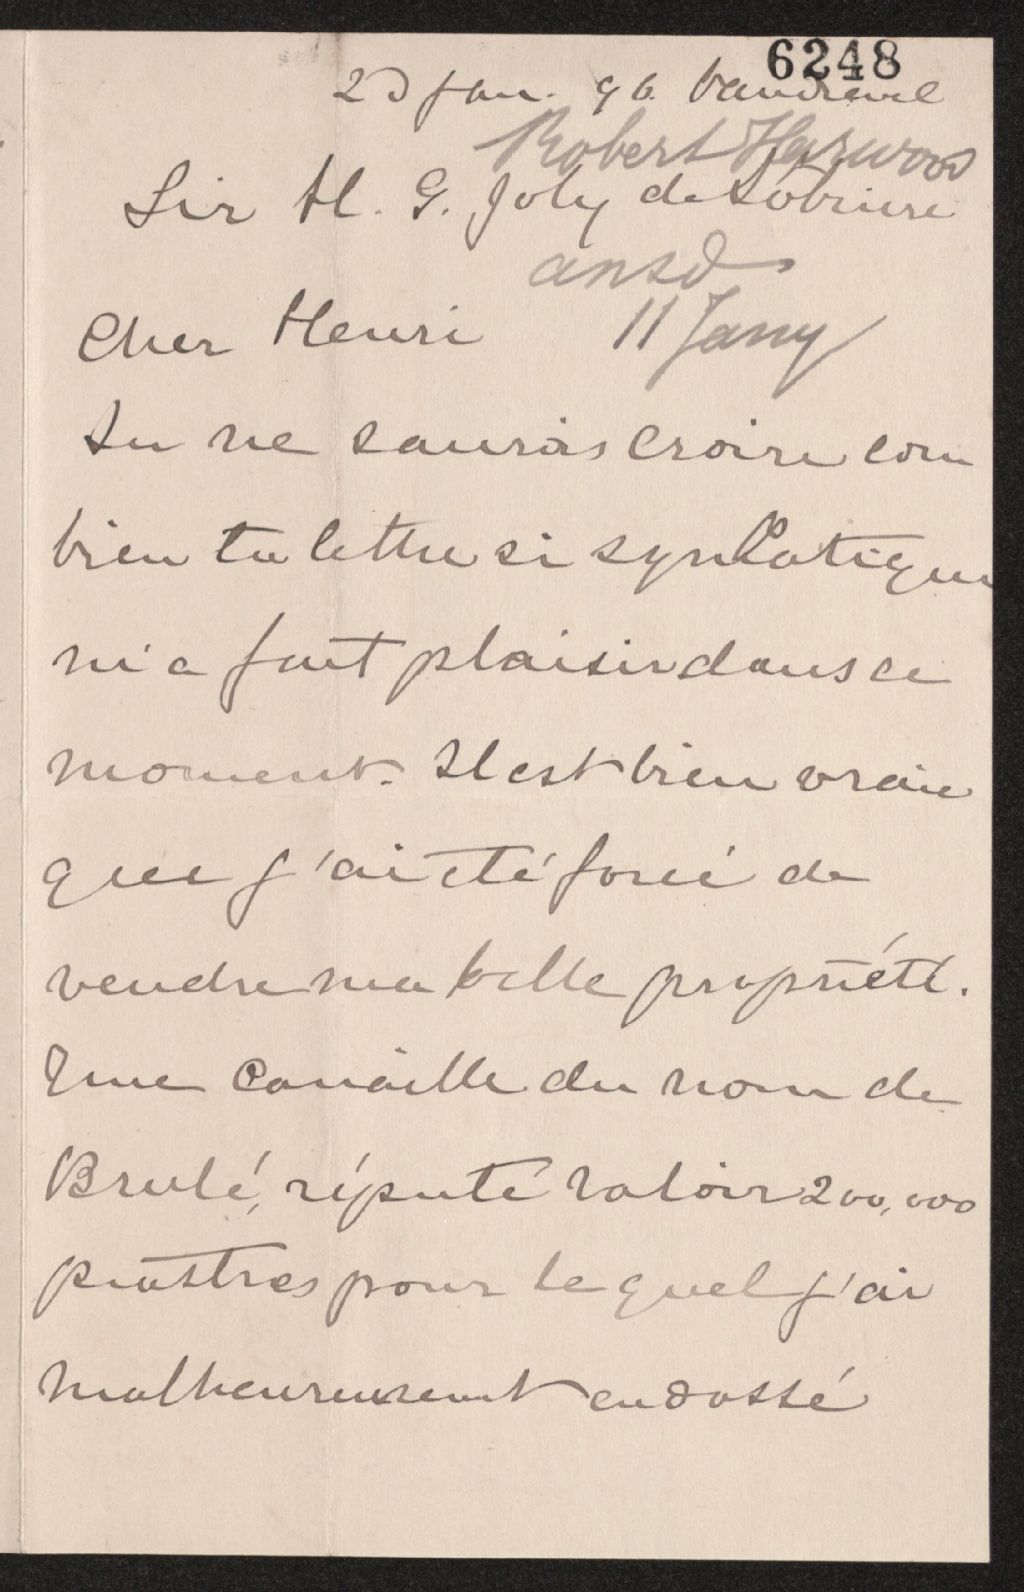 6248
2d Jan. 96. Vaudreuil
Robert Harwood
Sir H. G. Joly de Lotbiniere
ansd
11 Jany
Cher Henri
Tu ne saurais croire com
bien ta lettre si synpatique
m'a fait plaisir dans ce
moment. Il est bien vraie
que j'ai été forcé de
vendre ma belle propriété.
Une Canaille du nom de
Brulé, réputé valoir 200,000
piastres pour lequel j'ai
malheureusement endossé